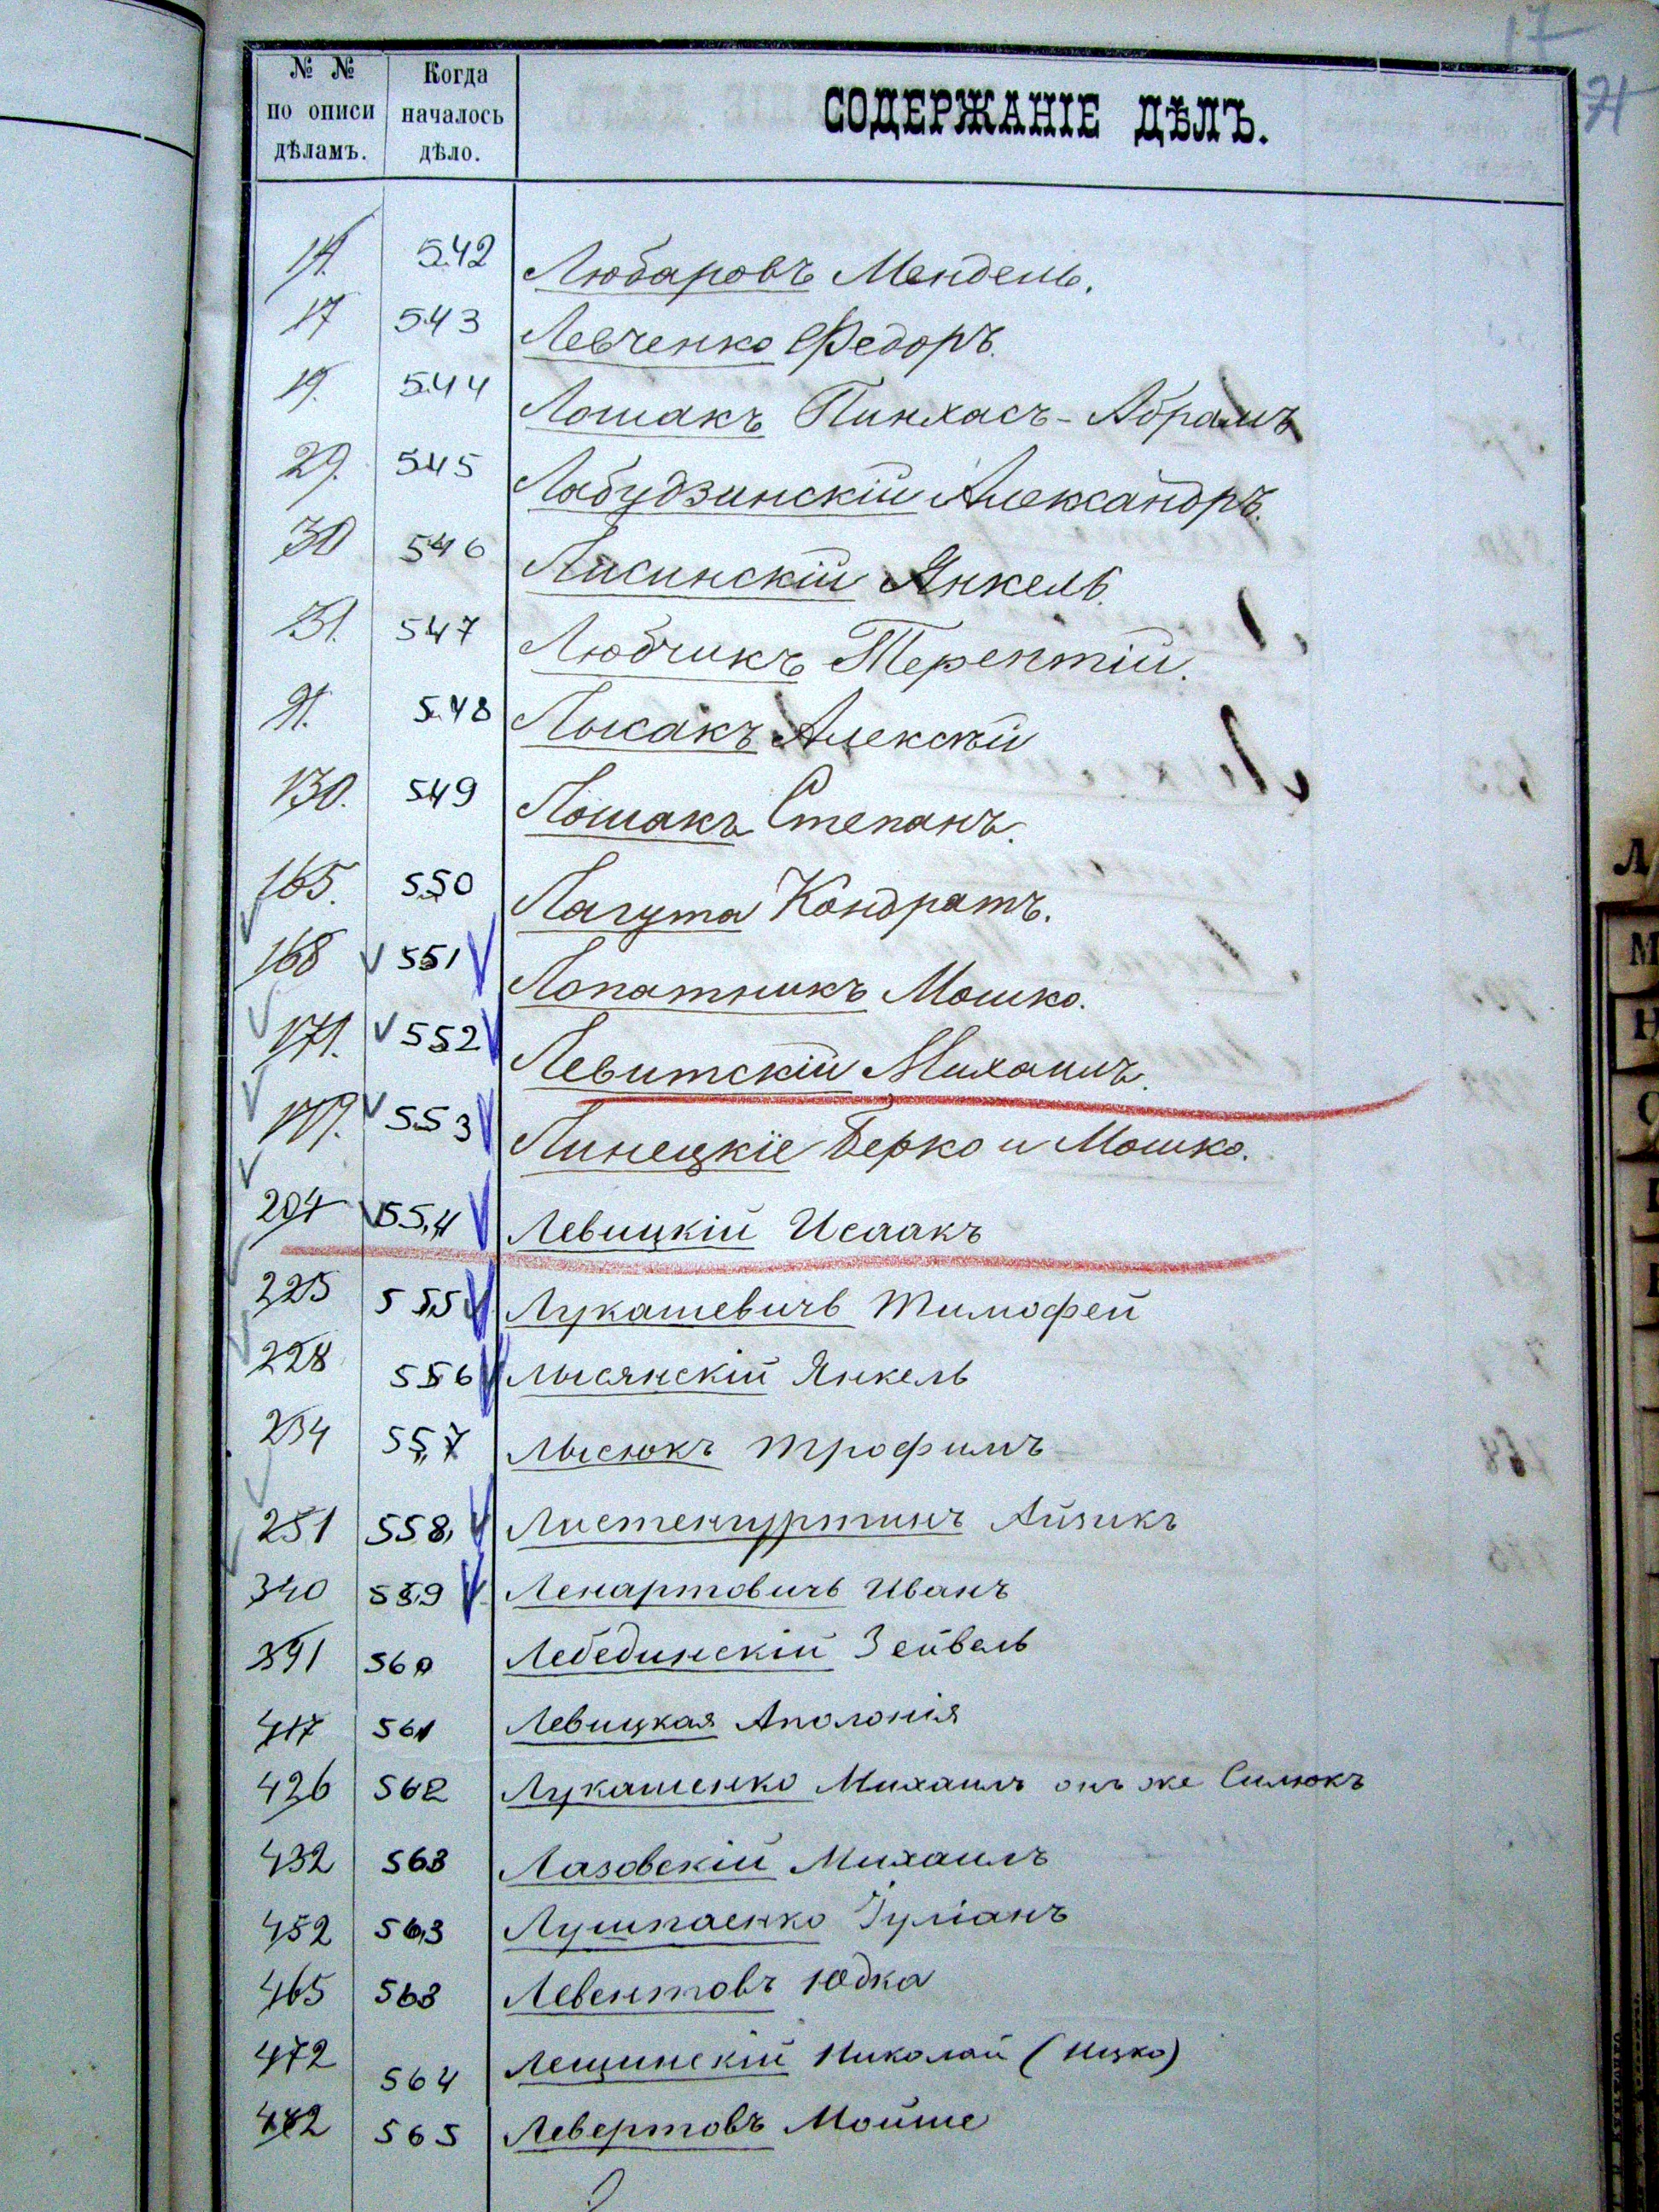 17
71
№ №
по описи
дѣламъ.
Когда
началось
дѣло.
СОДЕРЖАНІЕ ДѢЛЪ.
14. 542 Любаровъ Мендель.
17 543 Левченко Федоръ.
19. 544 Лошакъ Пинхасъ-Абрамъ
29. 545 Лабудзинскій Александръ.
30 546 Лисинскій Янкель.
31. 547 Любчикъ Терентій.
91. 548 Лысакъ Алексѣй
130. 549 Лошакъ Степанъ.
165. 550 Лагута Кондратъ.
168 551 Лопатникъ Мошко.
171. 552 Левитскій Михаилъ.
179. 553 Линецкіе Берко и Мошко.
204 554 Левицкій Исаакъ
225 555 Лукашевичъ Тимофей
228 556 Лысянскій Янкель
234 557 Лысюкъ Трофимъ
251 558 Айзикъ
340 559 Ленартовичъ Иванъ
391 560 Лебединскій Зейвель
417 561 Левицкая Аполонія
426 562 Лукашенко Михаилъ онъ же Силюкъ
432 563 Лазовскій Михаилъ
452 563 Лушпаенко Іуліанъ
465 563 Левентовъ Юдка
472 564 Лещинскій Николай (Ицко)
482 565 Левертовъ Мойше
Л
М
Н